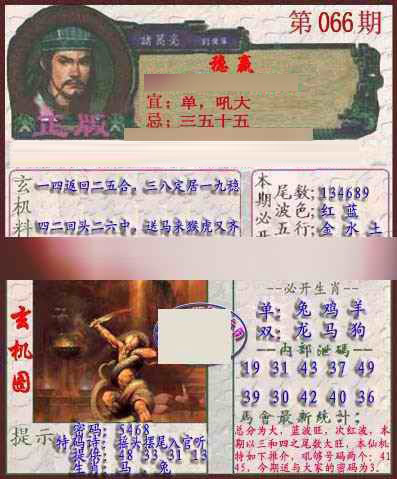 第066期
諸葛亮
稳赢
宜：单，吼大
忌：三五十五
正版
玄机料
一四返回二五合，三八定居一九稳
四二回头二六中，送马来猴虎又齐
本期必开
尾数；134689
波色；红 蓝
五行；金 水 土
玄机图
--必开生肖--
单：兔 鸡 羊
双：龙 马 狗
--内部泄码--
19 31 43 37 49
39 30 42 40 06
馬會最新統計；
总分为大，蓝波旺，次红波，本期以三和四之尾数大旺，本仙机特如下推介，吼够号码两个：4145，今期送与大家的密码为3．
提示
密码：5468
特码诗：摇头摆尾入官听
提供：48 33 31 13
生肖：马、兔